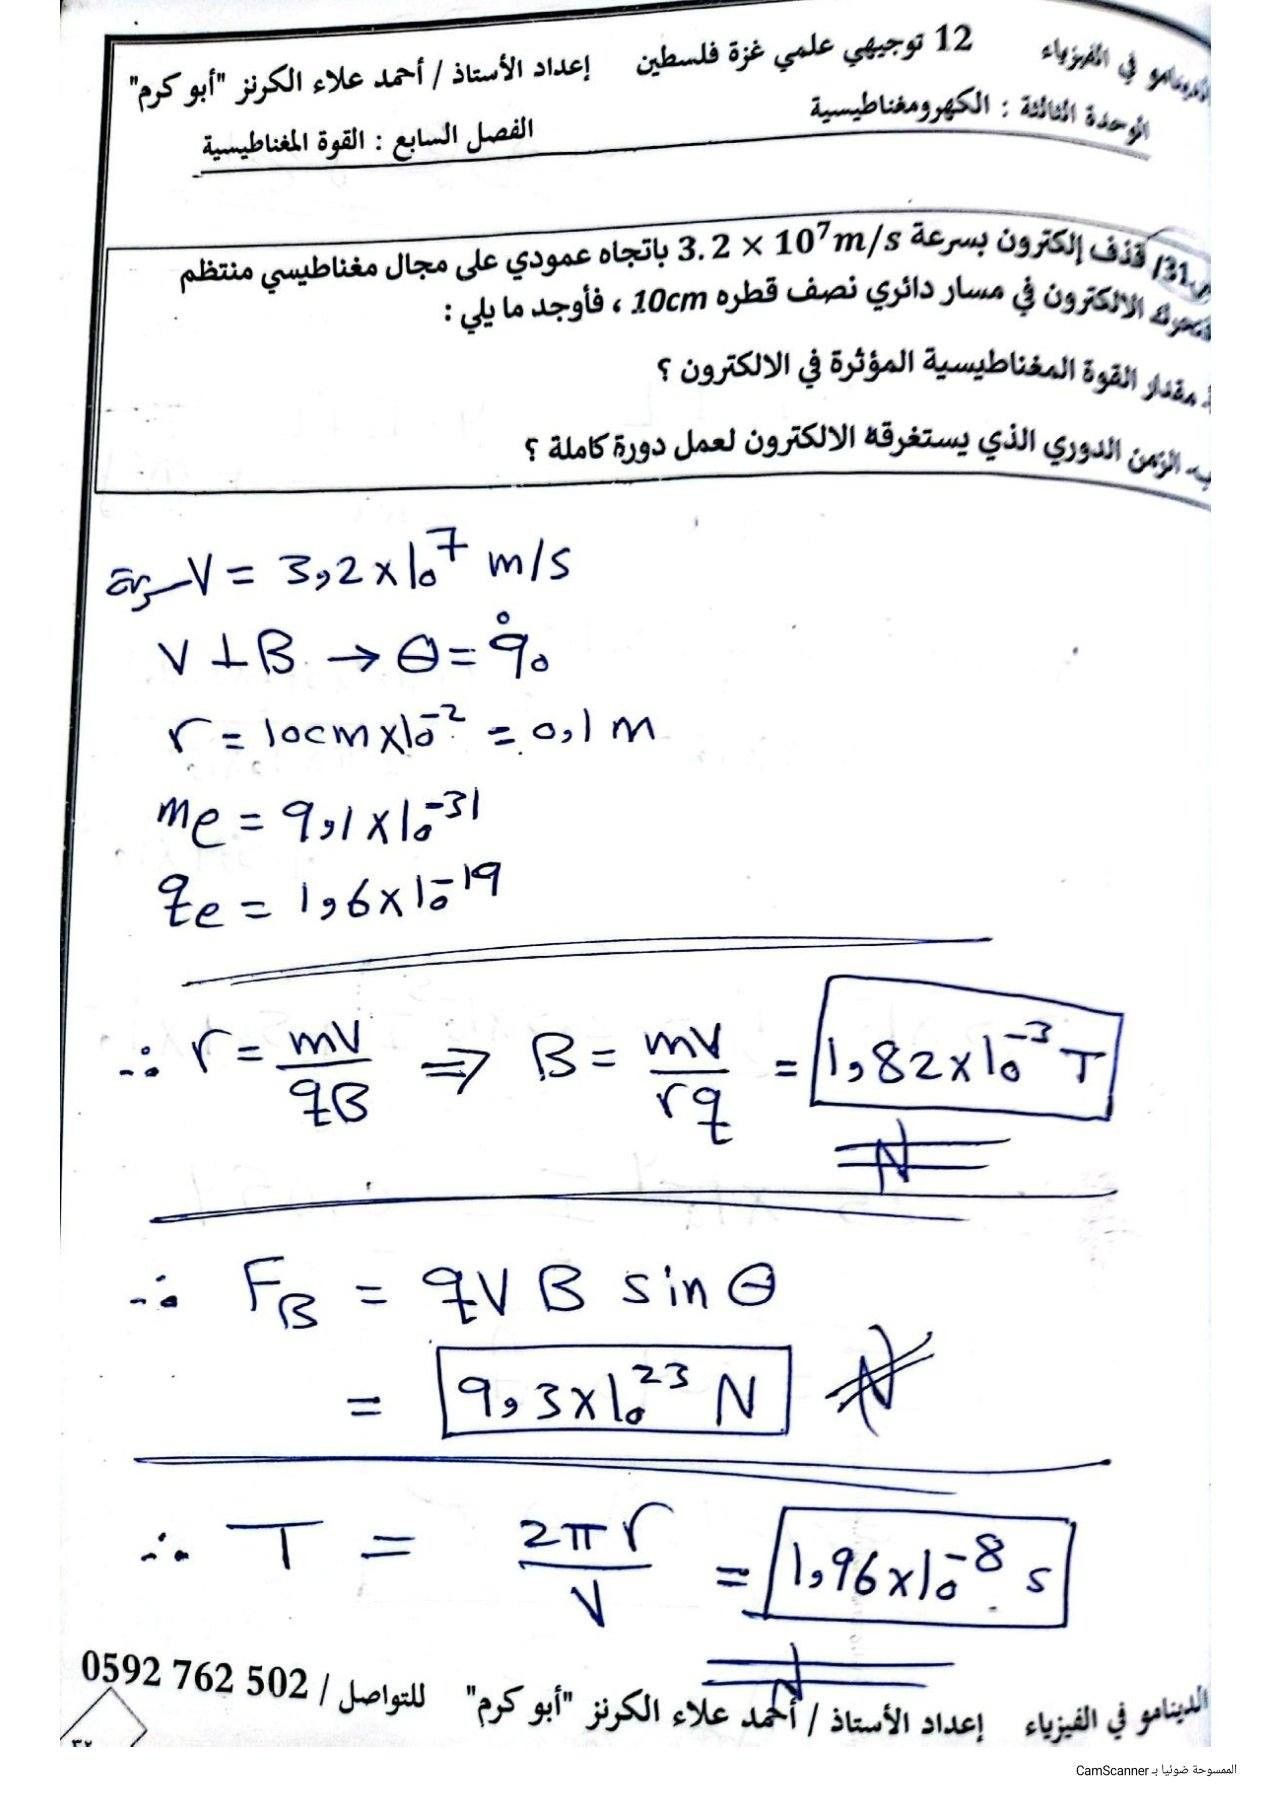 الدينامو في الفيزياء 12 توجيهي علمي غزة فلسطين إعداد الأستاذ / أحمد علاء الكرنز "أبو كرم"
الوحدة الثالثة : الكهرومغناطيسية الفصل السابع : القوة المغناطيسية
س31/ قذف إلكترون بسرعة 3.2 × 10⁷m/s باتجاه عمودي على مجال مغناطيسي منتظم
فتحرك الالكترون في مسار دائري نصف قطره 10cm ، فأوجد ما يلي :
أ. مقدار القوة المغناطيسية المؤثرة في الالكترون ؟
ب- الزمن الدوري الذي يستغرقه الالكترون لعمل دورة كاملة ؟
سرعة V = 3,2 x 10⁷ m/s
V ⊥ B → θ = 90°
r = 10cm x 10⁻² = 0,1 m
me = 9,1 x 10⁻³¹
qe = 1,6 x 10⁻¹⁹
∴ r = mV/qB ⇒ B = mV/rq = 1,82 x 10⁻³ T
∴ F_B = qVB sin θ
= 9,3 x 10²³ N
∴ T = 2πr/V = 1,96 x 10⁻⁸ s
الدينامو في الفيزياء إعداد الأستاذ / أحمد علاء الكرنز "أبو كرم" للتواصل / 0592 762 502
٣٢
الممسوحة ضوئيا بـ CamScanner